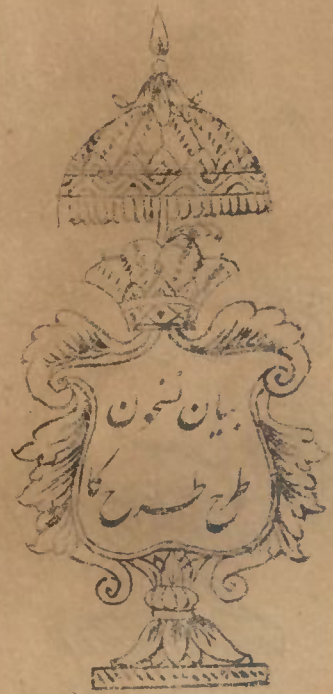 بیان نسخون
طرح طرح کا